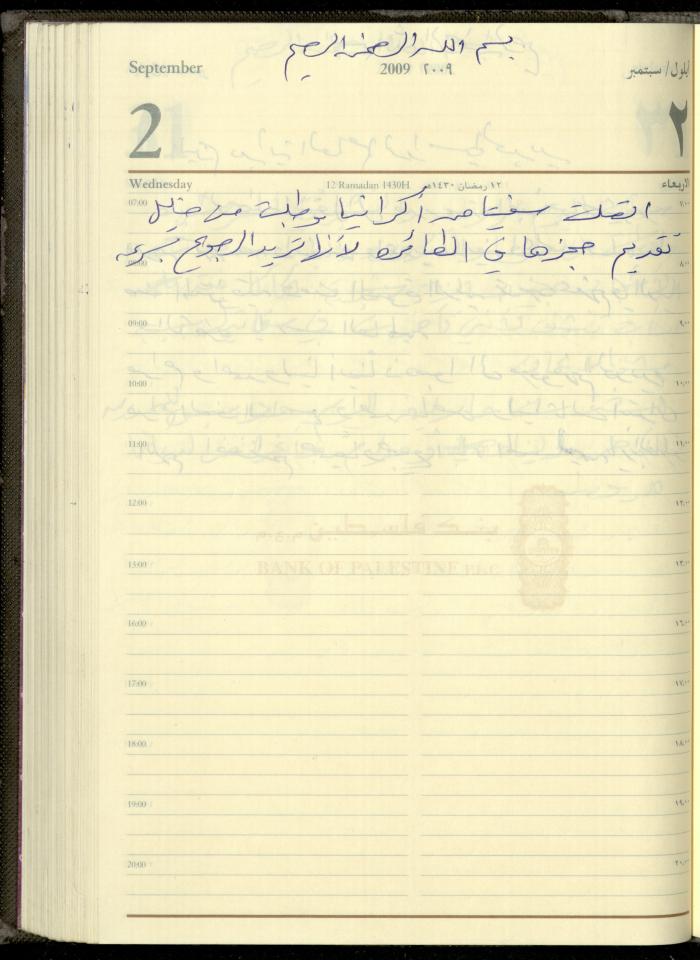 بسم الله الرحمن الرحيم
September 2009 ٢٠٠٩ أيلول / سبتمبر
2 ٢
Wednesday 12 Ramadan 1430H ١٢ رمضان ١٤٣٠هـ الأربعاء
07:00 ٧:٠٠
اتصلت من أكرانيا وطلبت من خليل
تقديم حجزها في الطائره لأنها تريد الرجوع بسرعه
٨:٠٠
09:00 ٩:٠٠
10:00 ١٠:٠٠
11:00 ١١:٠٠
12:00 ١٢:٠٠
بنك فلسطين
BANK OF PALESTINE PLC
13:00 ١٣:٠٠
16:00 ١٦:٠٠
17:00 ١٧:٠٠
18:00 ١٨:٠٠
19:00 ١٩:٠٠
20:00 ٢٠:٠٠